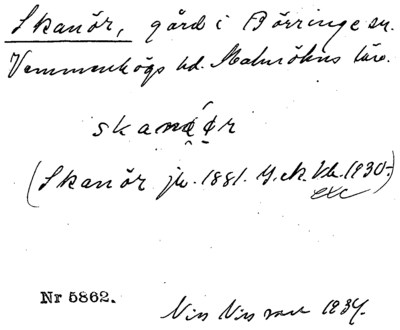 Skanör, gård i Börringe sn.
Vemmenhögs hd. Malmöhus län.
skanǿr
(Skanör jb. 1881. G.ek. kb. 1930.)
exc
Nr 5862.
1934.